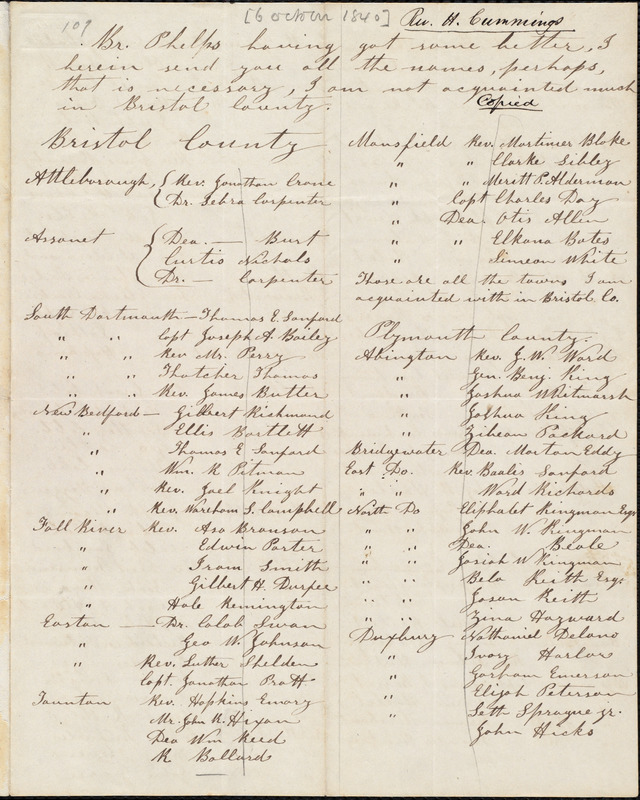 109
[6 octom 1840] Rev. H. Cummings
Mr. Phelps having got some better, I
herein send you all the names, perhaps,
that is necessary, I am not acquainted much
in Bristol County.
Copied
Bristol County
Attleborough, Rev. Jonathan Crane
Dr. Zebra Carpenter
Assonet Dea. — Burt
Curtis Nichols
Dr. — Carpenter
South Dartmouth — Thomas E. Sanford
" " Capt Joseph A. Bailey
" " Rev Mr. Perry
" " Thatcher Thomas
" " Rev. James Butler
New Bedford — Gilbert Richmond
" Ellis Bartlett
" Thomas E Sanford
" Wm. R Pitman
" Rev. Joel Knight
" Rev. Wareham S. Campbell
Fall River Rev. Asa Bronson
" Edwin Porter
" Iram Smith
" Gilbert H. Durfee
" Hale Remington
Easton — Dr. Caleb Swan
" Geo W. Johnson
" Rev. Luther Shelden
Capt. Jonathan Pratt
Taunton Rev. Hopkins Emery
Mr. John R. Hixon
Dea Wm Reed
R Ballard
Mansfield Rev. Mortimer Blake
" " Clarke Sibley
" " Meritt P. Alderman
" Capt Charles Day
" Dea. Otis Allin
" " Elkana Bates
" Simeon White
Those are all the towns I am
acquainted with in Bristol Co.
Plymouth County.
Abington Rev. J. W. Ward
" Gen. Benj. King
" Joshua Whitmarsh
" Joshua King
" Zibean Packard
Bridgewater Dea. Morton Eddy
East Do. Rev. Baalis Sanford
" " Ward Richards
North Do Eliphalet Kingman Esqr
" " John W. Kingman
" " Dea. Beale
" " Josiah W Kingman
" " Bela Keith Esq.
" " Jason Keith
" " Zina Hayward
Duxbury Nathaniel Delano
" Ivory Harlow
" Gorham Emerson
" Elijah Peterson
" Seth Sprague jr.
John Hicks